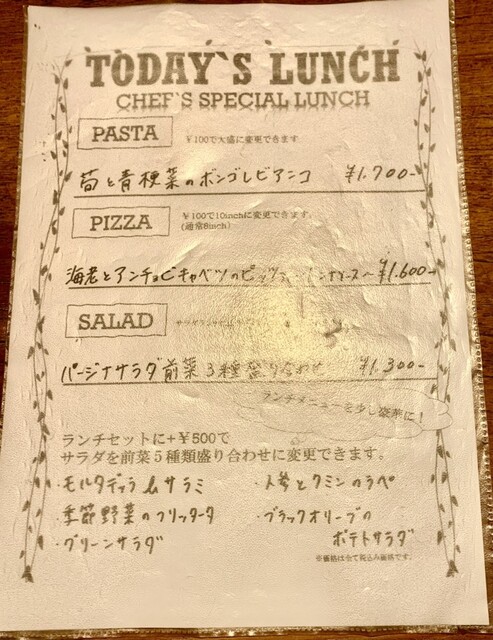 TODAY`S LUNCH
CHEF`S SPECIAL LUNCH
PASTA ¥100で大盛に変更できます
筍と青梗菜のボンゴレビアンコ ¥1.700-
PIZZA ¥100で10inchに変更できます。
(通常8inch)
海老とアンチョビキャベツのピッツァ ¥1.600-
SALAD
パージナサラダ前菜3種盛り合わせ ¥1.300-
ランチメニューを少し豪華に!
ランチセットに+¥500で
サラダを前菜5種類盛り合わせに変更できます。
・モルタデッラ&サラミ ・人参とクミンのラペ
・季節野菜のフリッタータ ・ブラックオリーブの
・グリーンサラダ ポテトサラダ
※価格は全て税込み価格です。